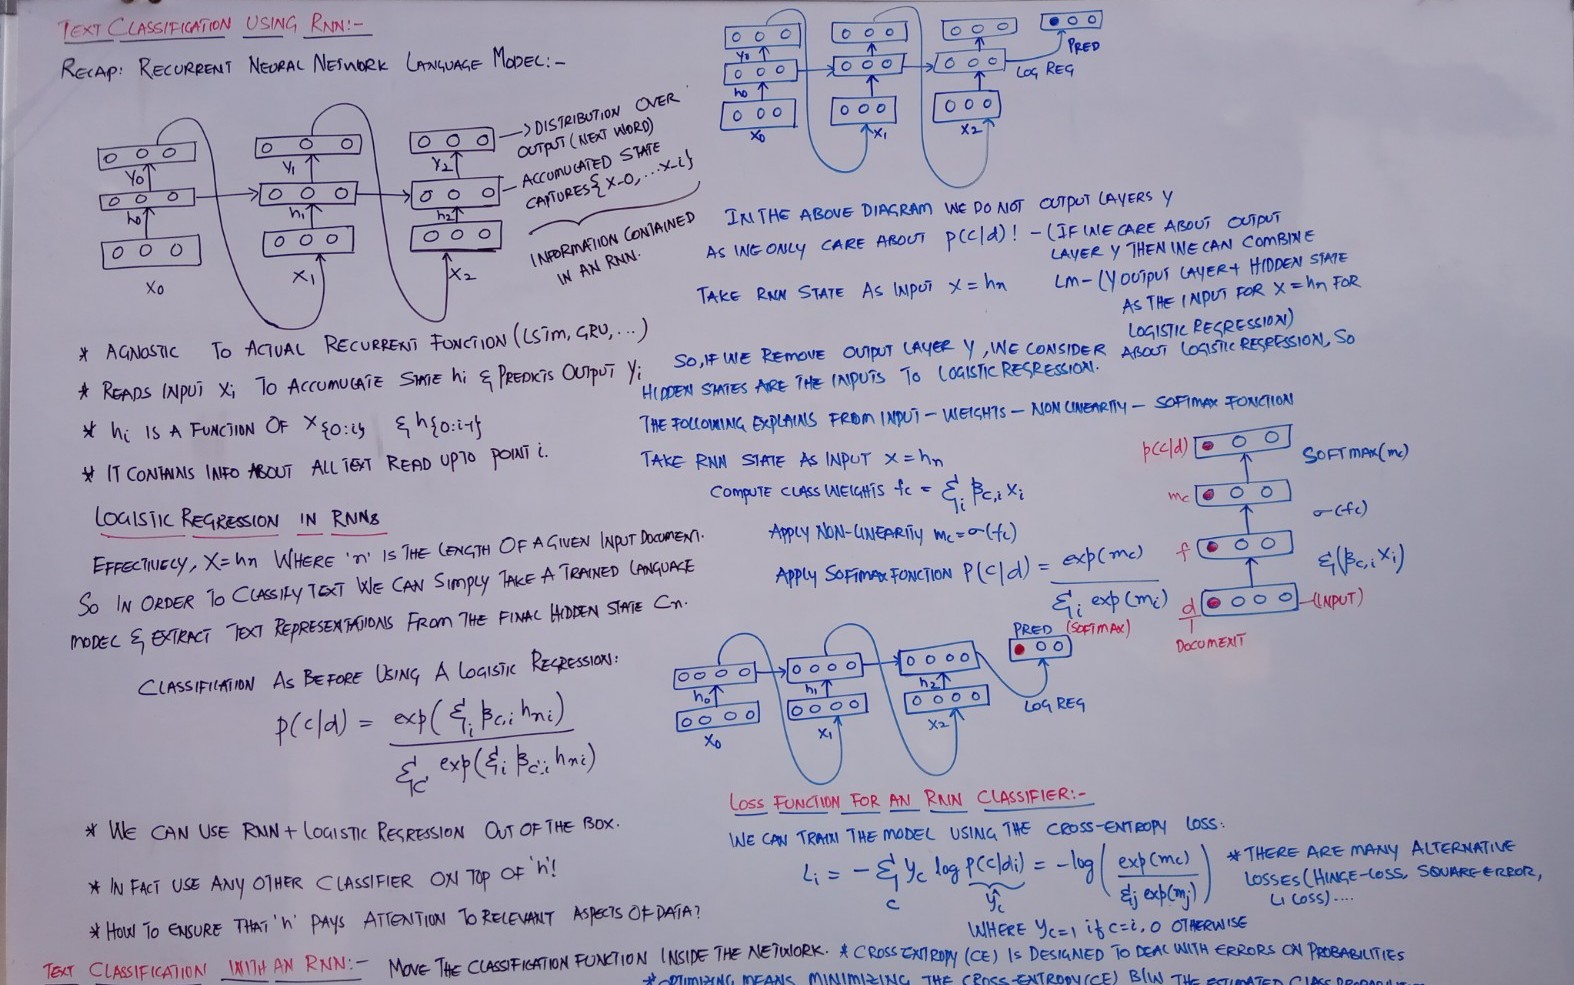 TEXT CLASSIFICATION USING RNN:-
RECAP: RECURRENT NEURAL NETWORK LANGUAGE MODEL:-
y0
h0
x0
y1
h1
x1
y2
h2
x2
→ DISTRIBUTION OVER
OUTPUT (NEXT WORD)
ACCUMULATED STATE
CAPTURES {x-0, ...x-i}
INFORMATION CONTAINED
IN AN RNN.
* AGNOSTIC TO ACTUAL RECURRENT FUNCTION (LSTM, GRU, ...)
* READS INPUT xi TO ACCUMULATE STATE hi & PREDICTS OUTPUT yi
* hi IS A FUNCTION OF x{0:i} & h{0:i-1}
* IT CONTAINS INFO ABOUT ALL TEXT READ UPTO POINT i.
LOGISTIC REGRESSION IN RNNs
EFFECTIVELY, X=hn WHERE 'n' IS THE LENGTH OF A GIVEN INPUT DOCUMENT.
SO IN ORDER TO CLASSIFY TEXT WE CAN SIMPLY TAKE A TRAINED LANGUAGE
MODEL & EXTRACT TEXT REPRESENTATIONS FROM THE FINAL HIDDEN STATE Cn.
CLASSIFICATION AS BEFORE USING A LOGISTIC REGRESSION:
p(c|d) = exp(Σi βc,i hni) / Σc' exp(Σi βc',i hni)
* WE CAN USE RNN + LOGISTIC REGRESSION OUT OF THE BOX.
* IN FACT USE ANY OTHER CLASSIFIER ON TOP OF 'h'!
* HOW TO ENSURE THAT 'h' PAYS ATTENTION TO RELEVANT ASPECTS OF DATA?
TEXT CLASSIFICATION WITH AN RNN:- MOVE THE CLASSIFICATION FUNCTION INSIDE THE NETWORK.
y0
h0
x0
x1
x2
PRED
LOG REG
IN THE ABOVE DIAGRAM WE DO NOT OUTPUT LAYERS Y
AS WE ONLY CARE ABOUT p(c|d)! - (IF WE CARE ABOUT OUTPUT
LAYER Y THEN WE CAN COMBINE
LM-(Y OUTPUT LAYER + HIDDEN STATE
AS THE INPUT FOR X = hn FOR
LOGISTIC REGRESSION)
TAKE RNN STATE AS INPUT X = hn
SO, IF WE REMOVE OUTPUT LAYER Y, WE CONSIDER ABOUT LOGISTIC REGRESSION, SO
HIDDEN STATES ARE THE INPUTS TO LOGISTIC REGRESSION.
THE FOLLOWING EXPLAINS FROM INPUT - WEIGHTS - NON LINEARITY - SOFTMAX FUNCTION
TAKE RNN STATE AS INPUT X = hn
COMPUTE CLASS WEIGHTS fc = Σi βc,i xi
APPLY NON-LINEARITY mc = σ(fc)
APPLY SOFTMAX FUNCTION P(c|d) = exp(mc) / Σi exp(mi)
p(c|d)
SOFTMAX(mc)
mc
σ(fc)
f
Σ(βc,i xi)
d
(INPUT)
DOCUMENT
PRED (SOFTMAX)
h0
x0
h1
x1
h2
x2
LOG REG
LOSS FUNCTION FOR AN RNN CLASSIFIER:-
WE CAN TRAIN THE MODEL USING THE CROSS-ENTROPY LOSS:
Li = -Σc yc log p(c|di) = -log( exp(mc) / Σj exp(mj) )
ŷc
WHERE yc=1 if c=i, 0 OTHERWISE
* THERE ARE MANY ALTERNATIVE
LOSSES (HINGE-LOSS, SQUARE ERROR,
L1 LOSS)....
* CROSS ENTROPY (CE) IS DESIGNED TO DEAL WITH ERRORS ON PROBABILITIES
* OPTIMIZING MEANS MINIMIZING THE CROSS-ENTROPY (CE) B/W THE ESTIMATED CLASS